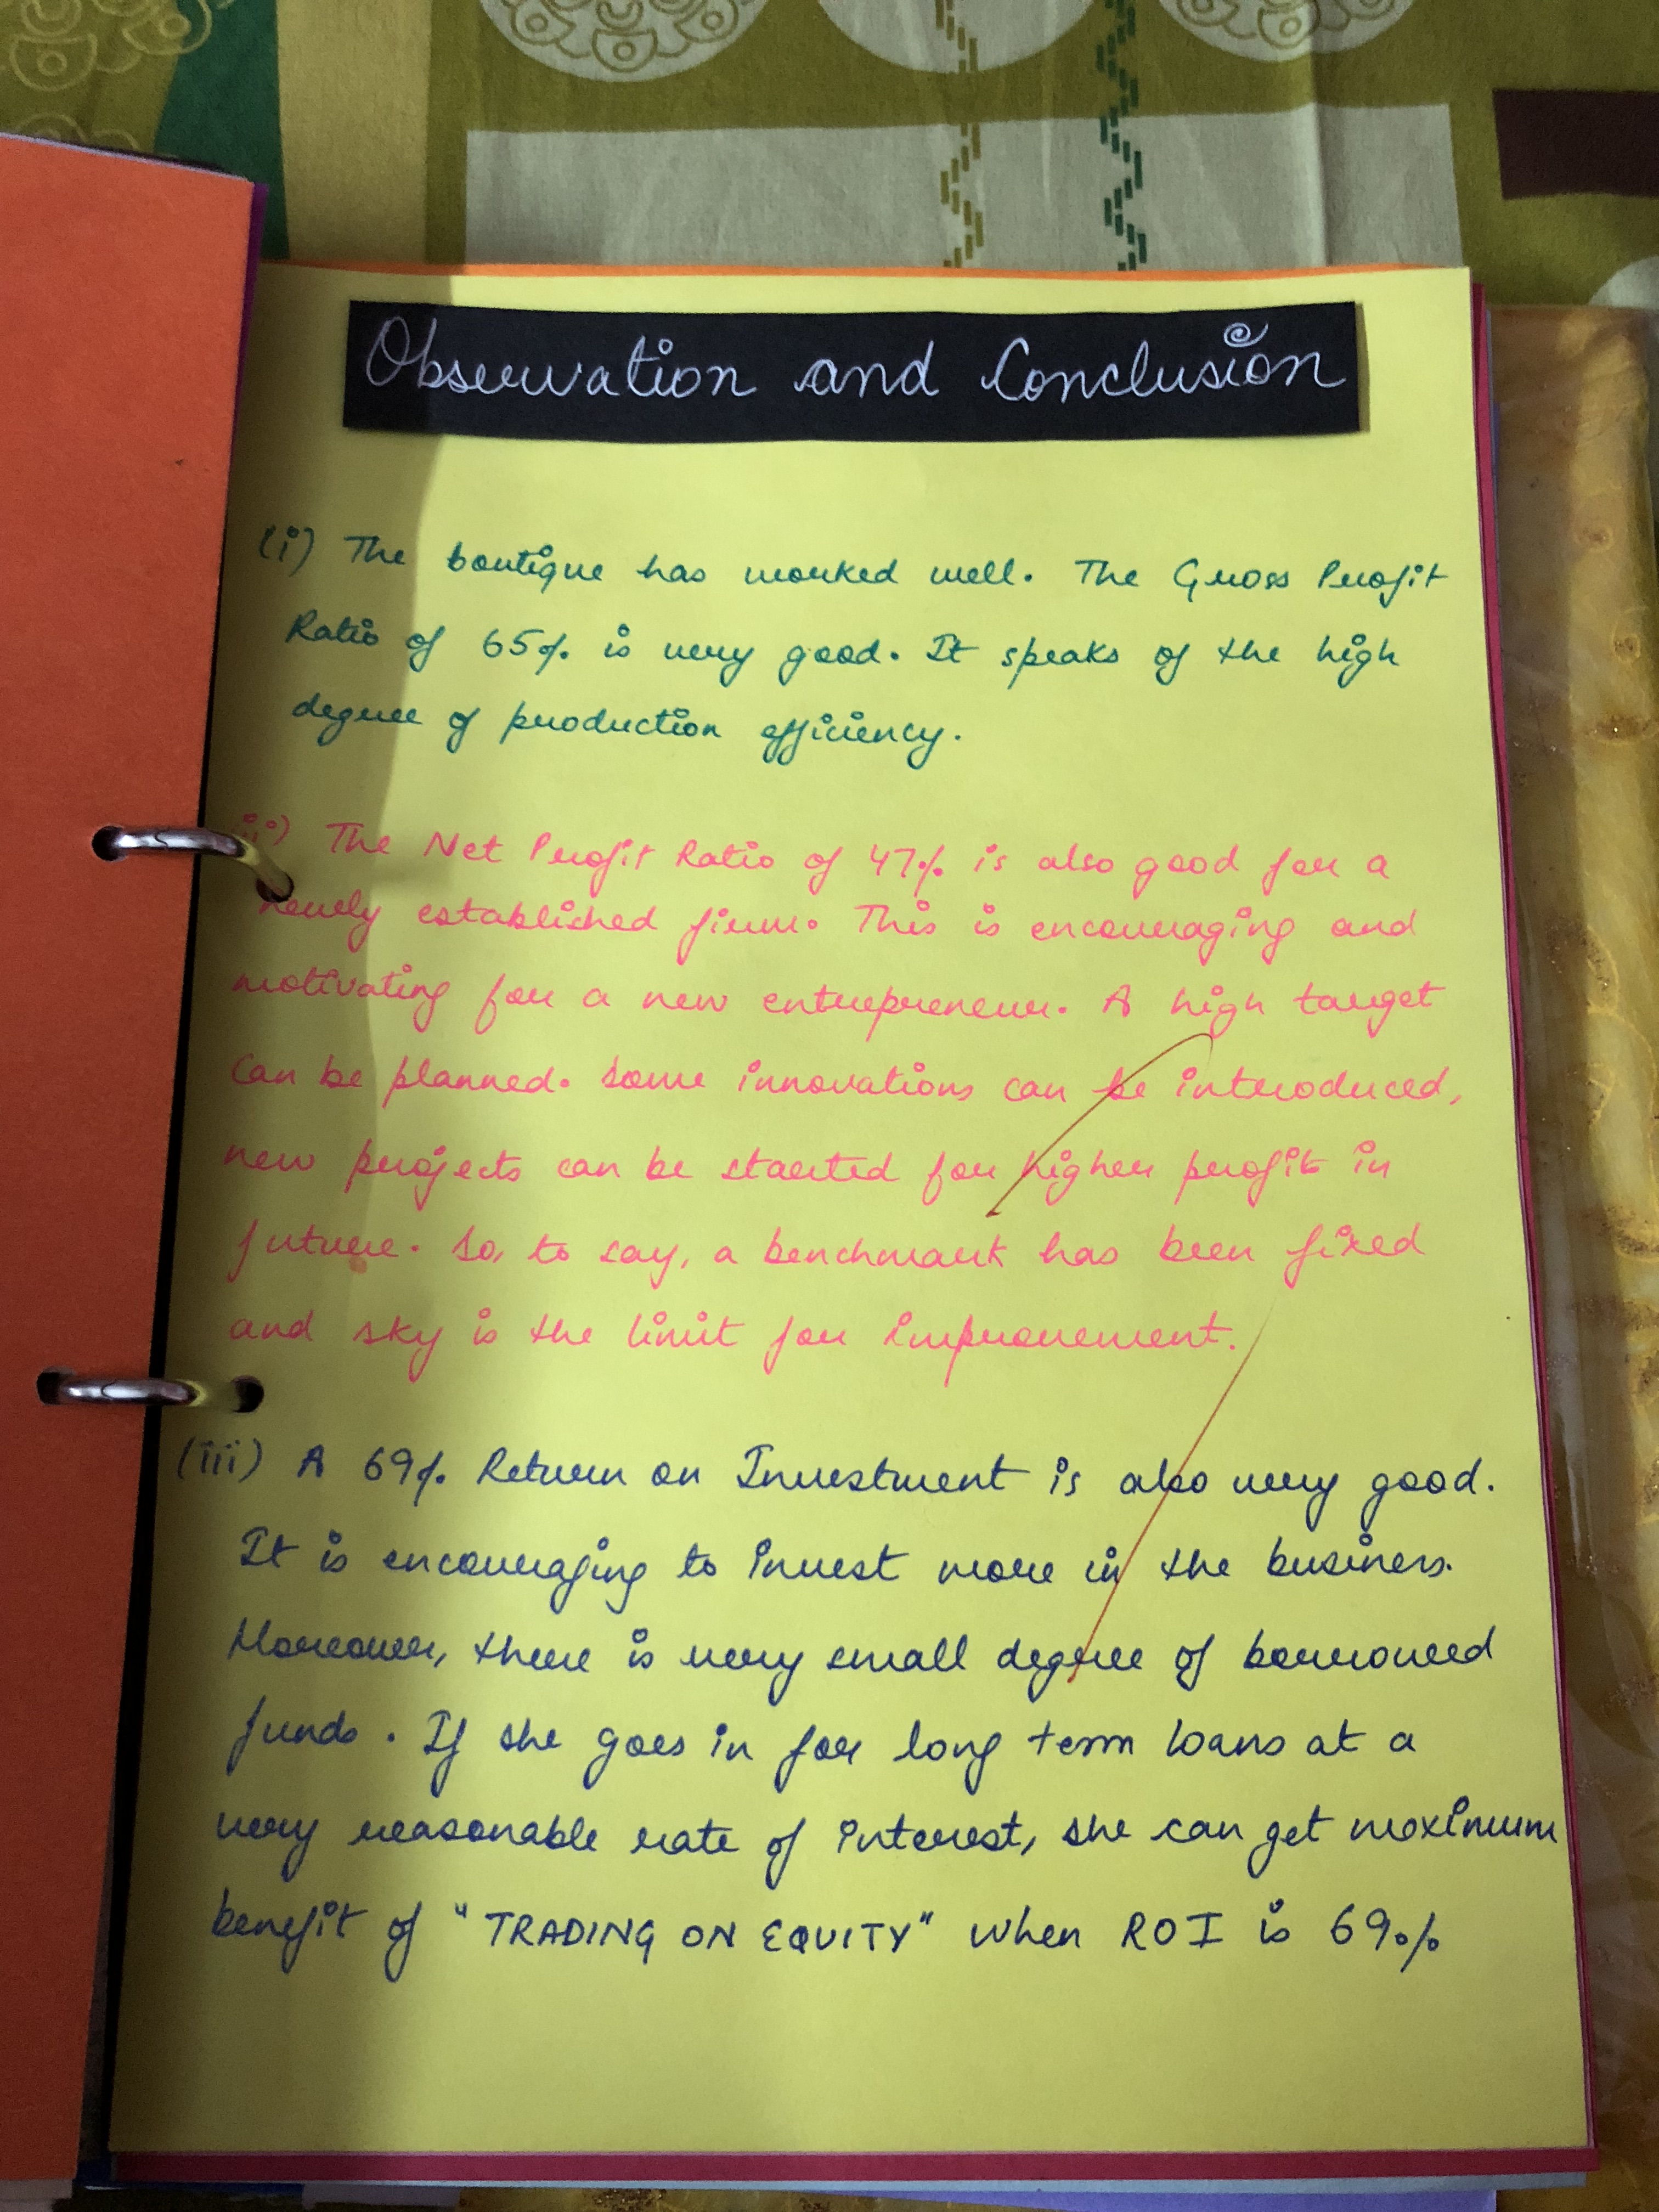 Observation and Conclusion
(i) The boutique has worked well. The Gross Profit
Ratio of 65% is very good. It speaks of the high
degree of production efficiency.
ii) The Net Profit Ratio of 47% is also good for a
newly established firm. This is encouraging and
motivating for a new entrepreneur. A high target
can be planned. Some innovations can be introduced,
new projects can be started for higher profit in
future. So, to say, a benchmark has been fixed
and sky is the limit for improvement.
(iii) A 69% Return on Investment is also very good.
It is encouraging to invest more in the business.
Moreover, there is very small degree of borrowed
funds. If she goes in for long term loans at a
very reasonable rate of interest, she can get maximum
benefit of "TRADING ON EQUITY" when ROI is 69%